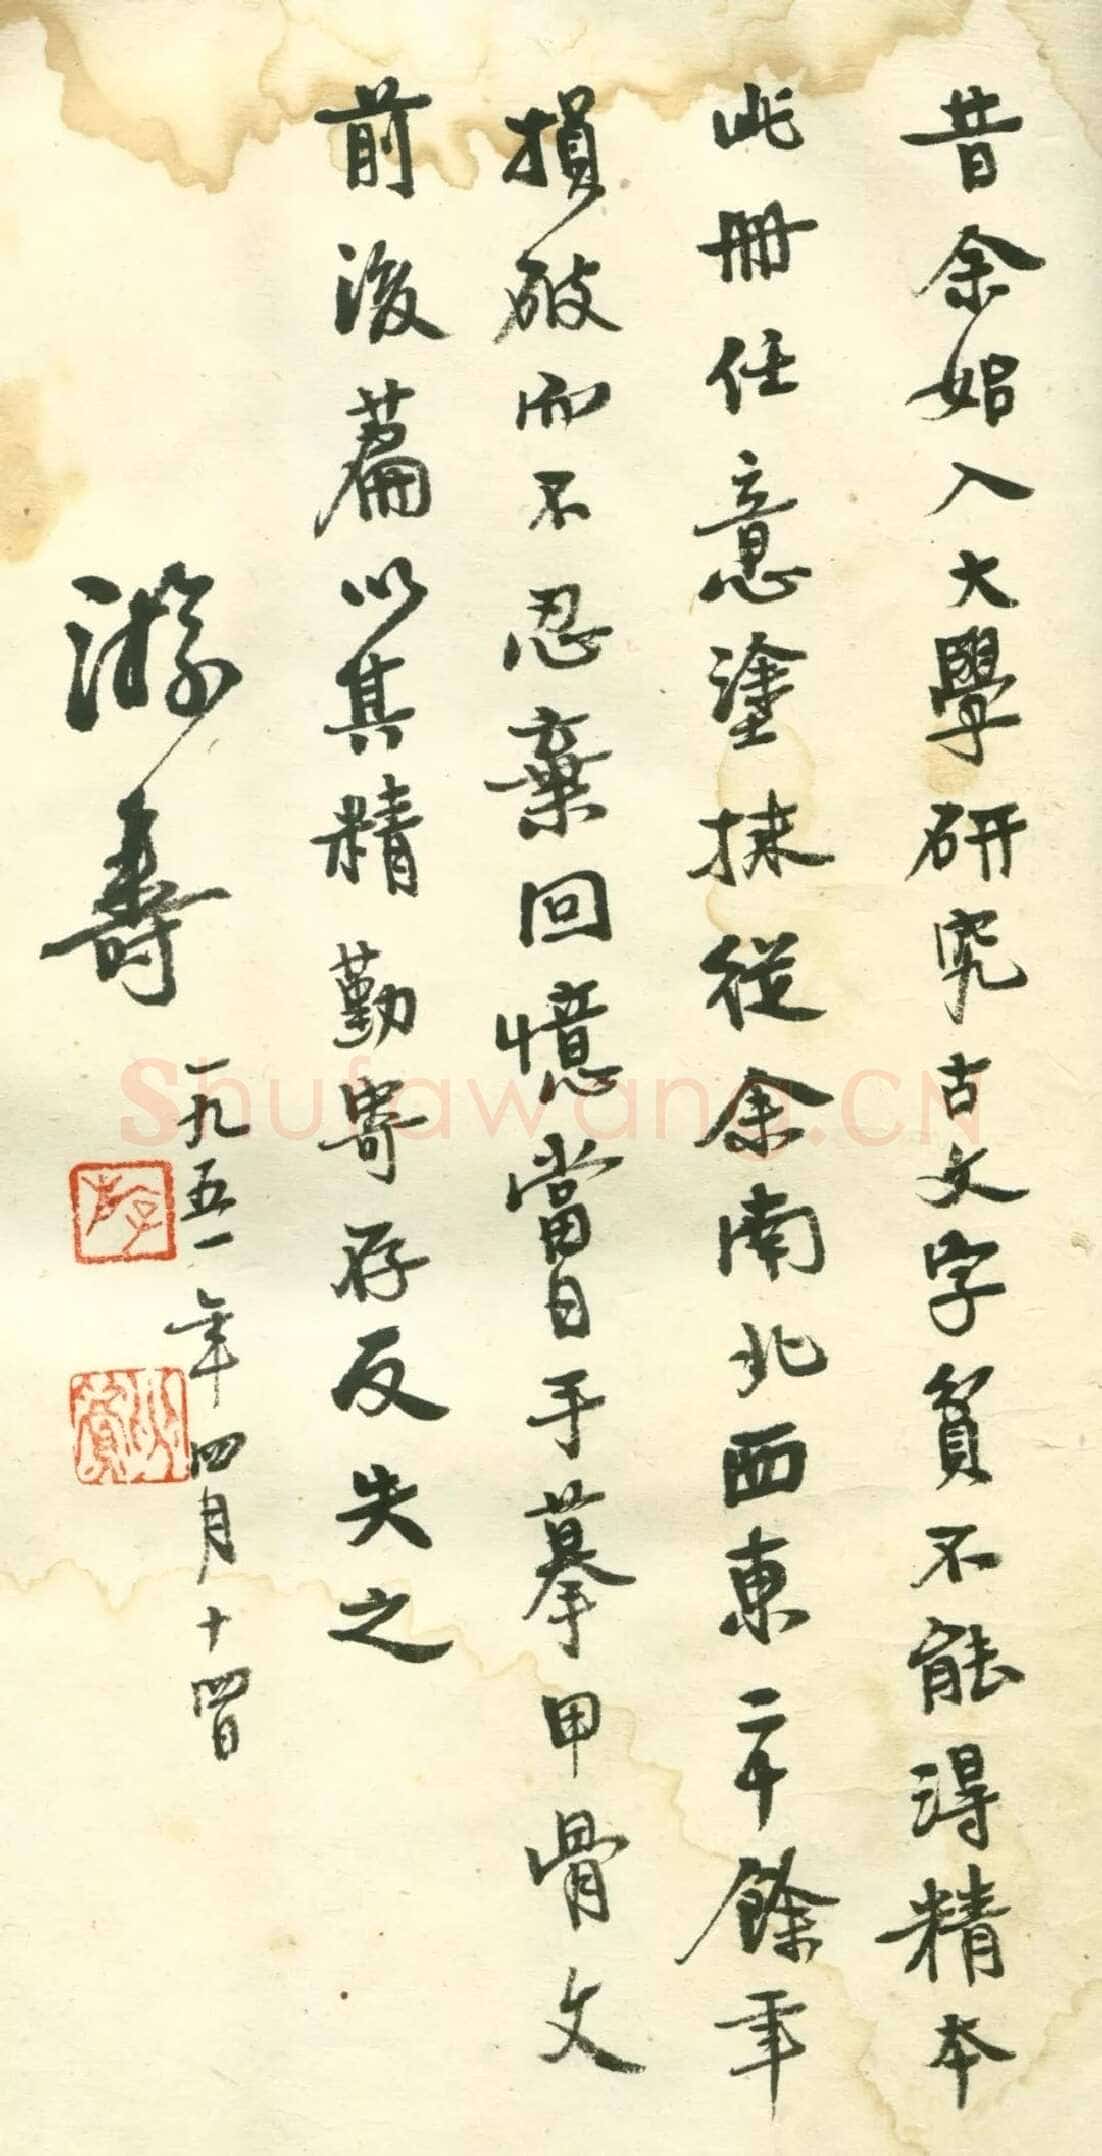 昔余始入大學研究古文字貧不能得精本
此冊任意塗抹從余南北西東二十餘年
損破而不忍棄回憶當日手摹甲骨文
前後萹以其精勤寄存反失之
游壽
一九五一年四月十四日
Shufawang.CN